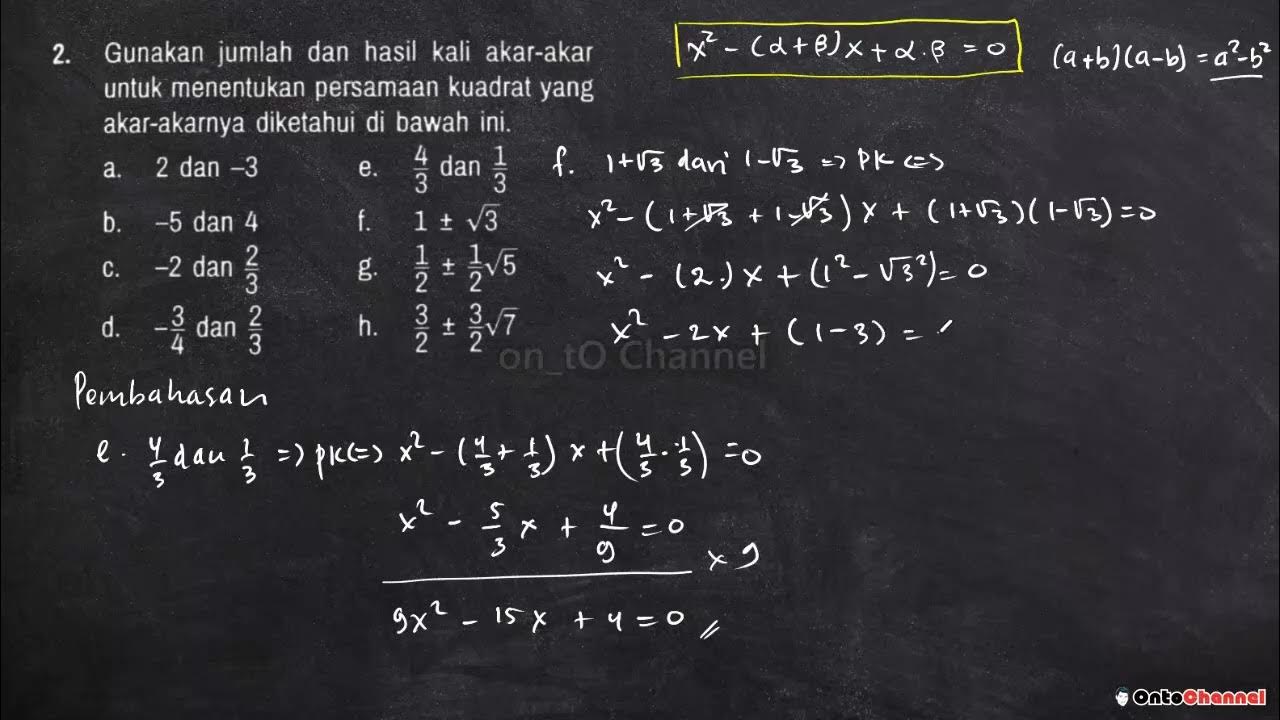 2. Gunakan jumlah dan hasil kali akar-akar
untuk menentukan persamaan kuadrat yang
akar-akarnya diketahui di bawah ini.
a. 2 dan −3
b. −5 dan 4
c. −2 dan 2/3
d. −3/4 dan 2/3
e. 4/3 dan 1/3
f. 1 ± √3
g. 1/2 ± 1/2√5
h. 3/2 ± 3/2√7
x² − (α + β)x + α.β = 0
(a+b)(a−b) = a²−b²
f. 1+√3 dan 1−√3 => PK <=>
x² − (1+√3 + 1−√3)x + (1+√3)(1−√3) = 0
x² − (2.)x + (1² − √3²) = 0
x² − 2x + (1−3) =
on_tO Channel
Pembahasan
e. 4/3 dan 1/3 => pk <=> x² − (4/3 + 1/3)x + (4/3 . 1/3) = 0
x² − 5/3 x + 4/9 = 0
x 9
9x² − 15x + 4 = 0 //
OntoChannel